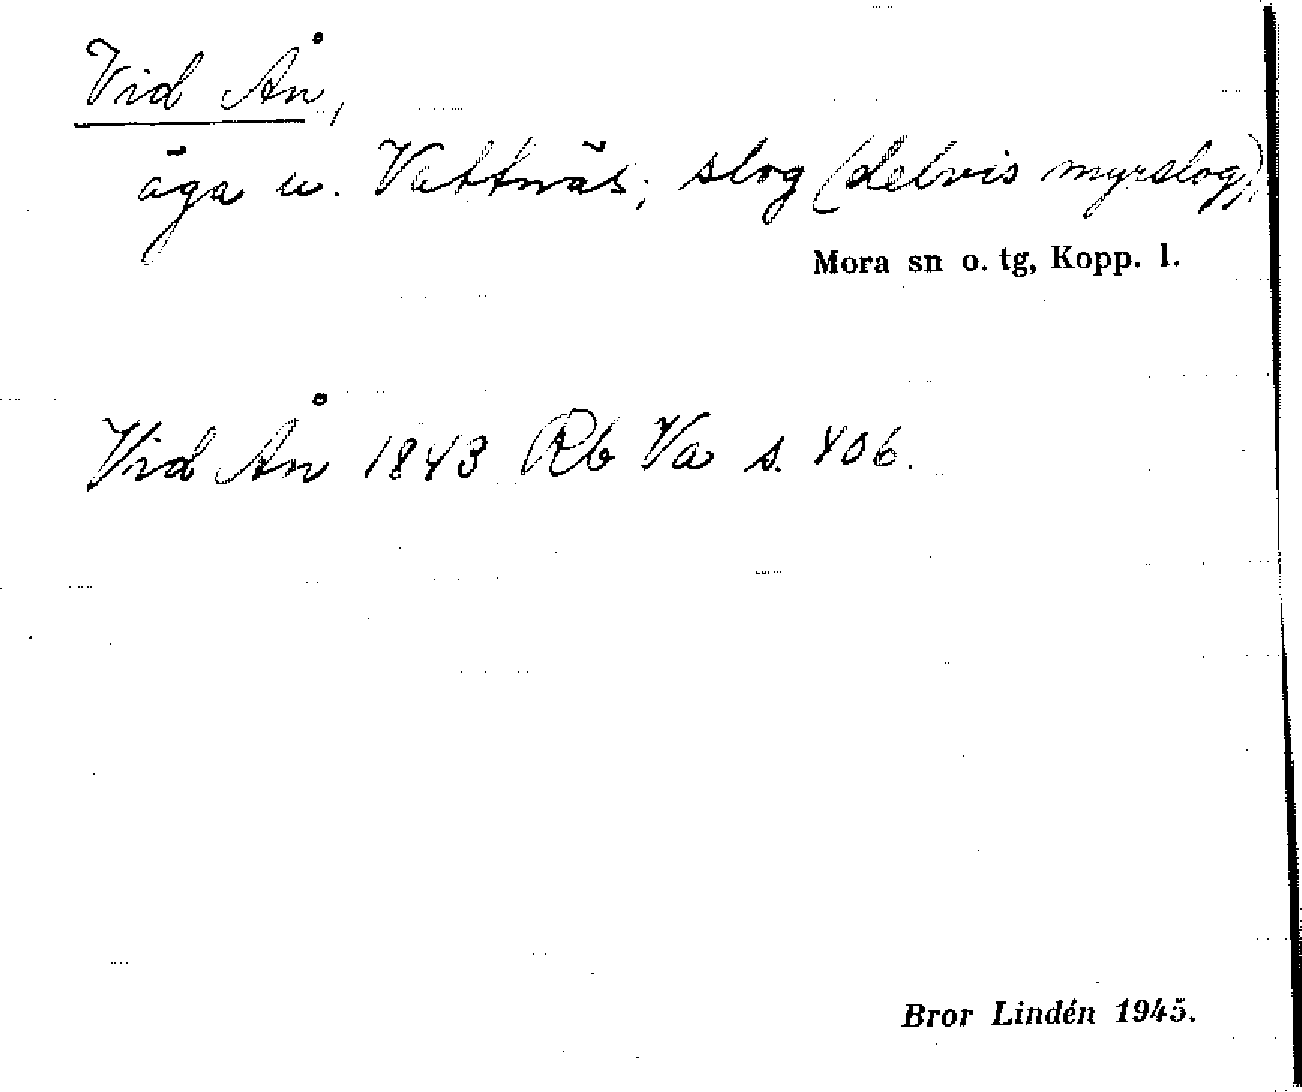 Vid Ån,
äga u. Vattnäs; slog (delvis myrslog).
Mora sn o. tg, Kopp. l.
Vid Ån 1843 Rb Va s. 406.
Bror Lindén 1945.